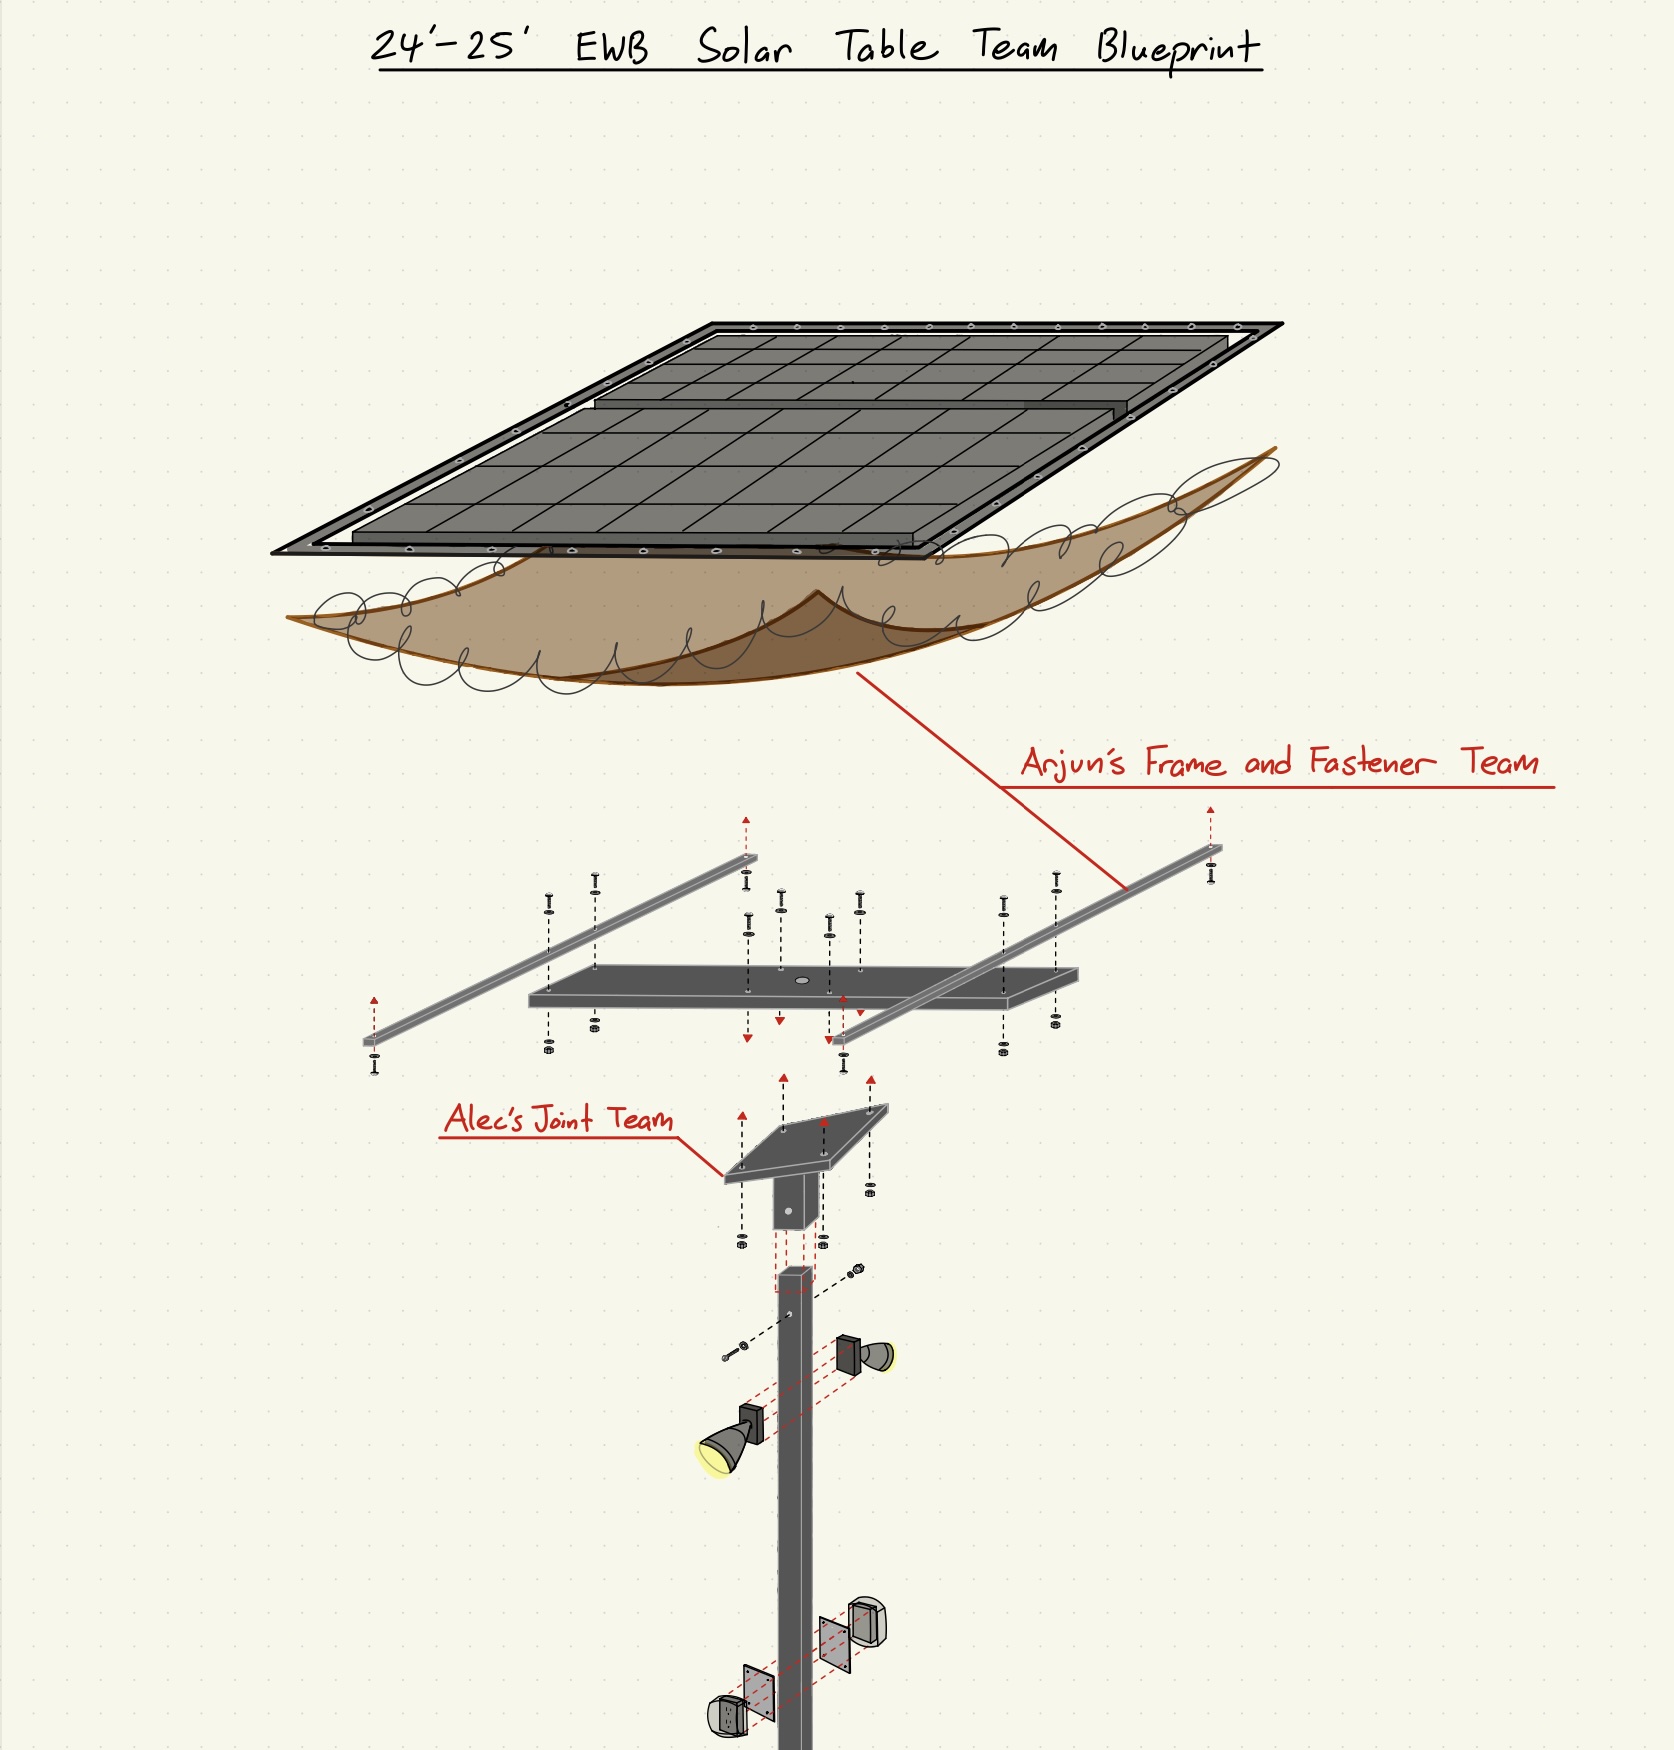 24'-25' EWB Solar Table Team Blueprint
Arjun's Frame and Fastener Team
Alec's Joint Team